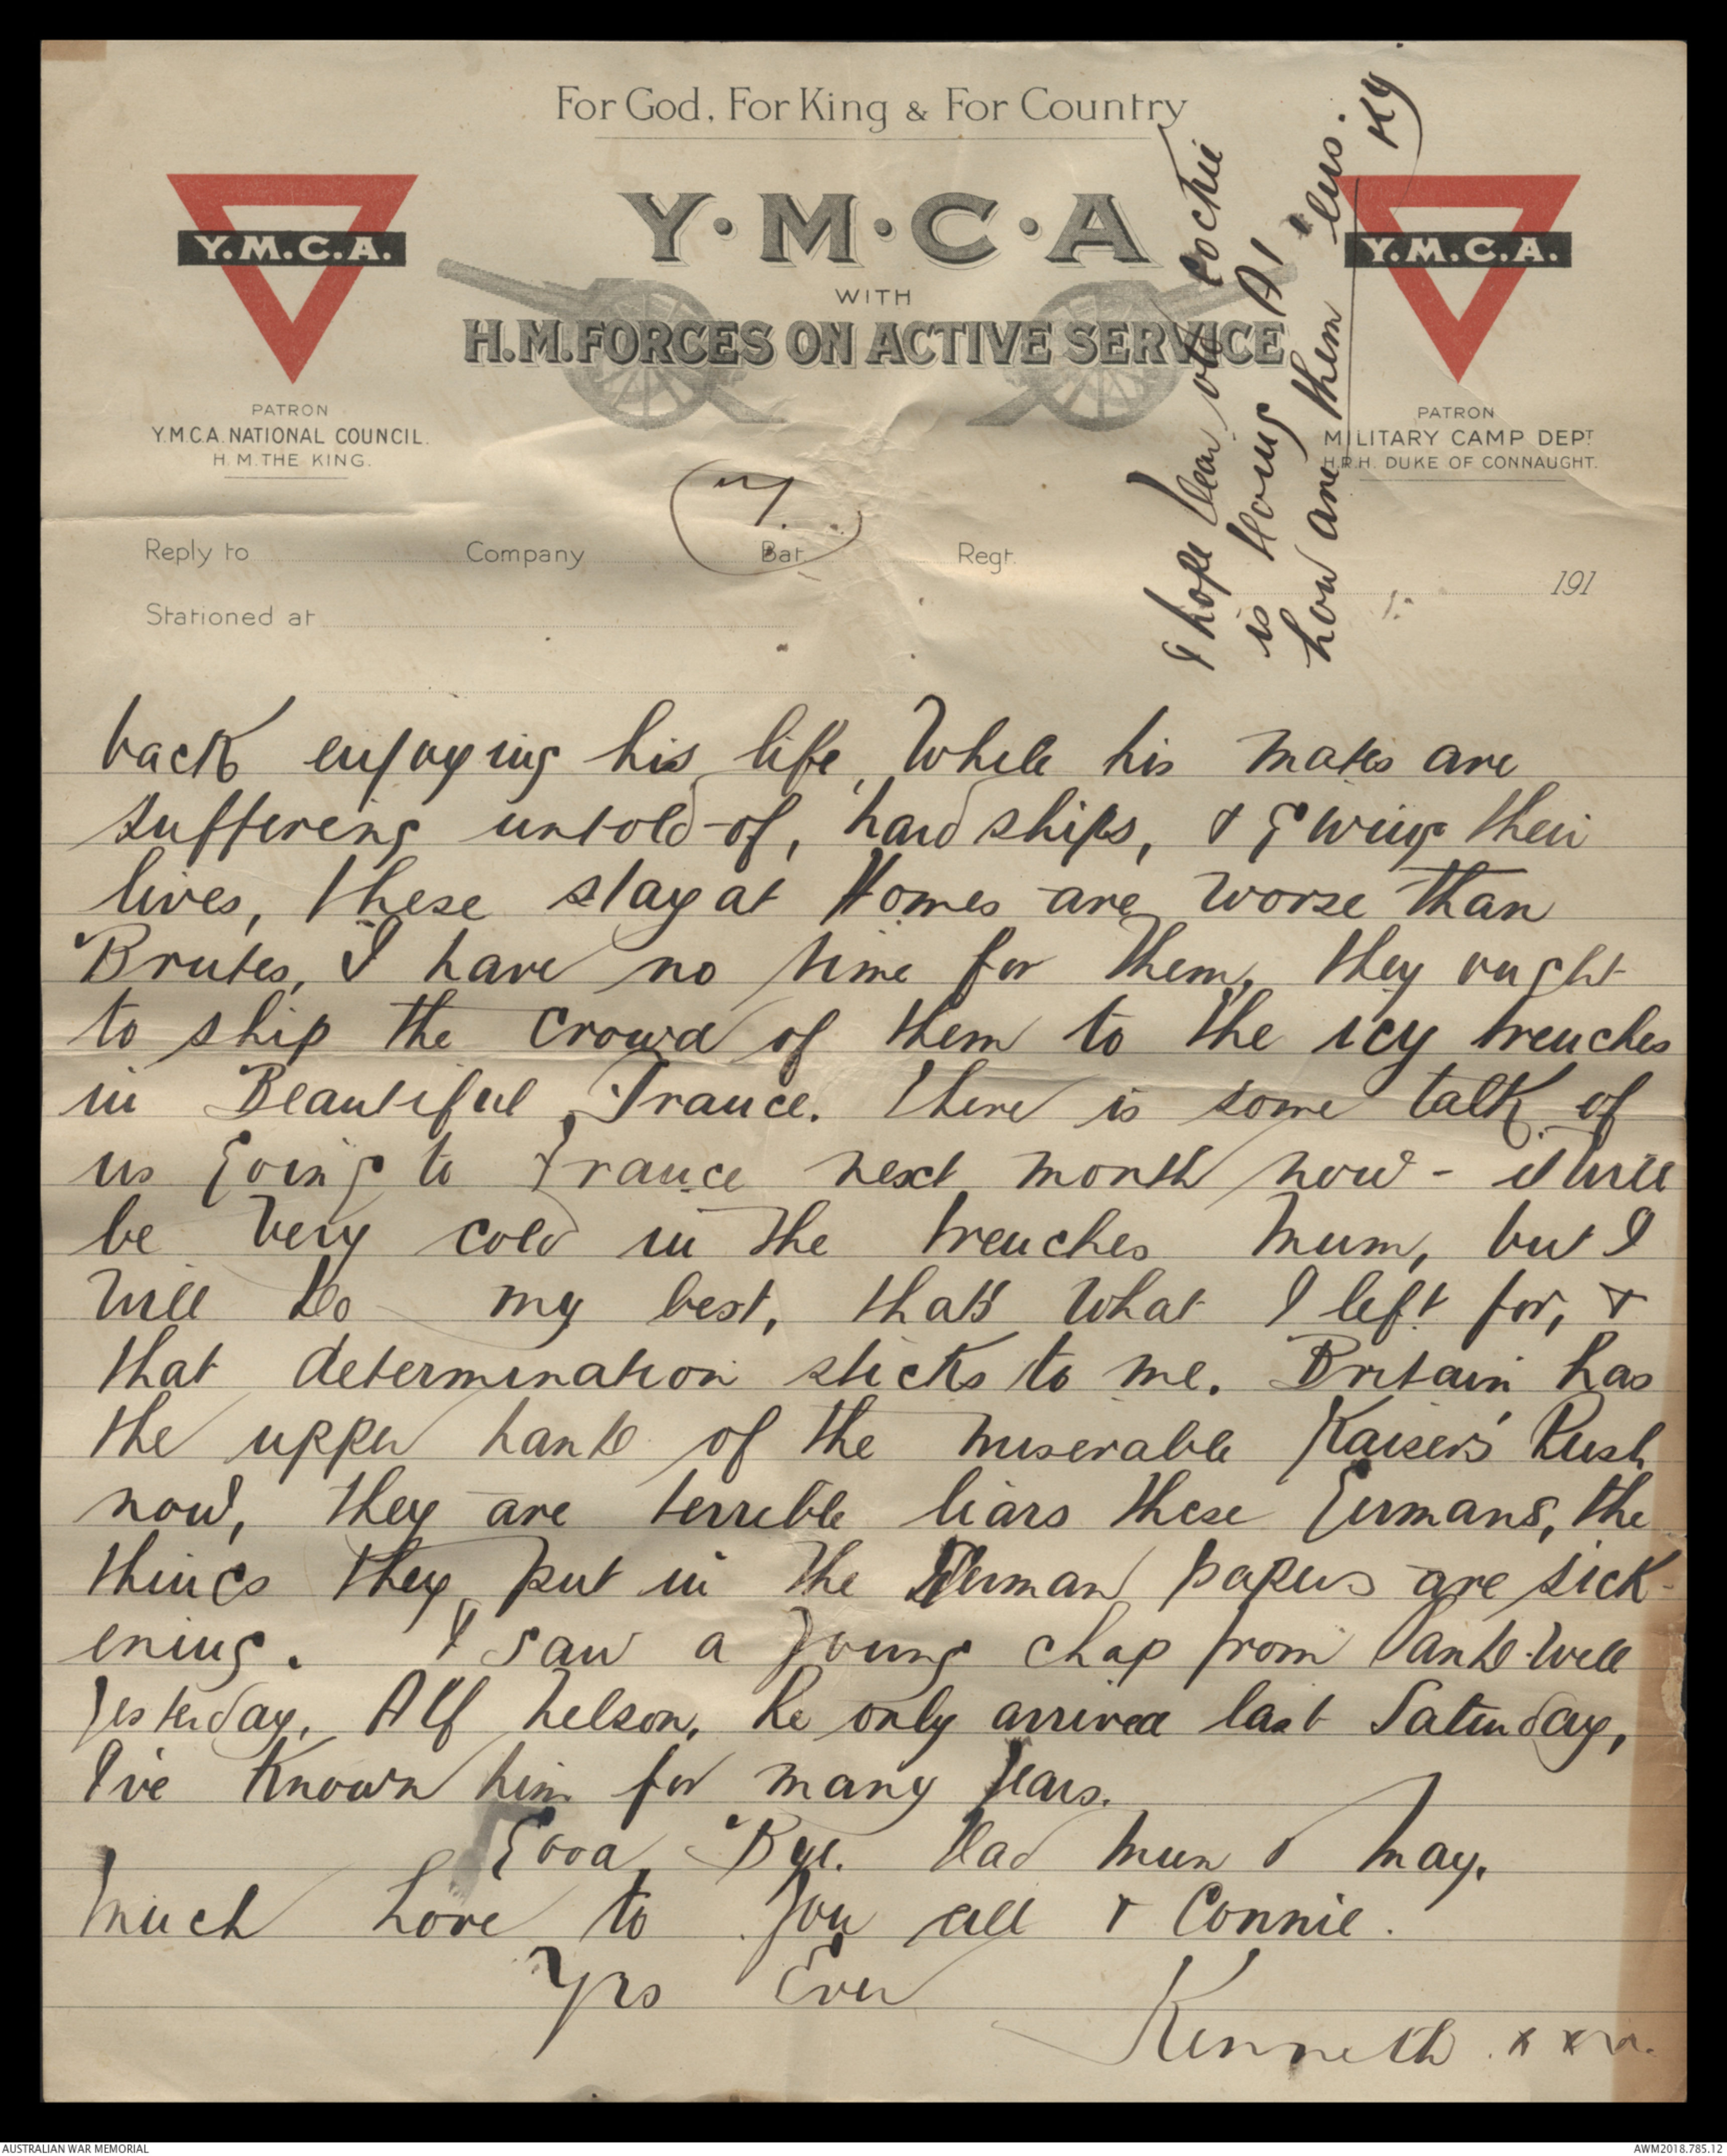 For God, For King & For Country
Y.M.C.A.
Y·M·C·A
WITH
H.M. FORCES ON ACTIVE SERVICE
Y.M.C.A.
PATRON
Y.M.C.A. NATIONAL COUNCIL.
H.M. THE KING.
PATRON
MILITARY CAMP DEPT
H.R.H. DUKE OF CONNAUGHT.
I hope dear old cockie
is doing A1
how are them 'ens.
KY
7.
Reply to Company Bat. Regt.
191
Stationed at
back enjoying his life, While his mates are
suffering untold-of, hardships, & giving their
lives, these stay at Homes are worse than
Brutes, I have no time for them, they ought
to ship the crowd of them to the icy trenches
in Beautiful France. There is some talk of
us going to France next month now - it will
be very cold in the trenches Mum, but I
will do my best, thats what I left for, &
that determination sticks to me. Britain has
the upper hand of the miserable Kaiser's Push
now, they are terrible liars these Germans, the
things they put in the German papers are sick-
ening. I saw a young chap from Bankwell
yesterday, Alf Nelson, he only arrived last Saturday,
I've known him for many years.
Good Bye. Dad Mum & May.
Much Love to you all & Connie.
Yrs Ever
Kenneth. xxx.
AUSTRALIAN WAR MEMORIAL
AWM2018.785.12